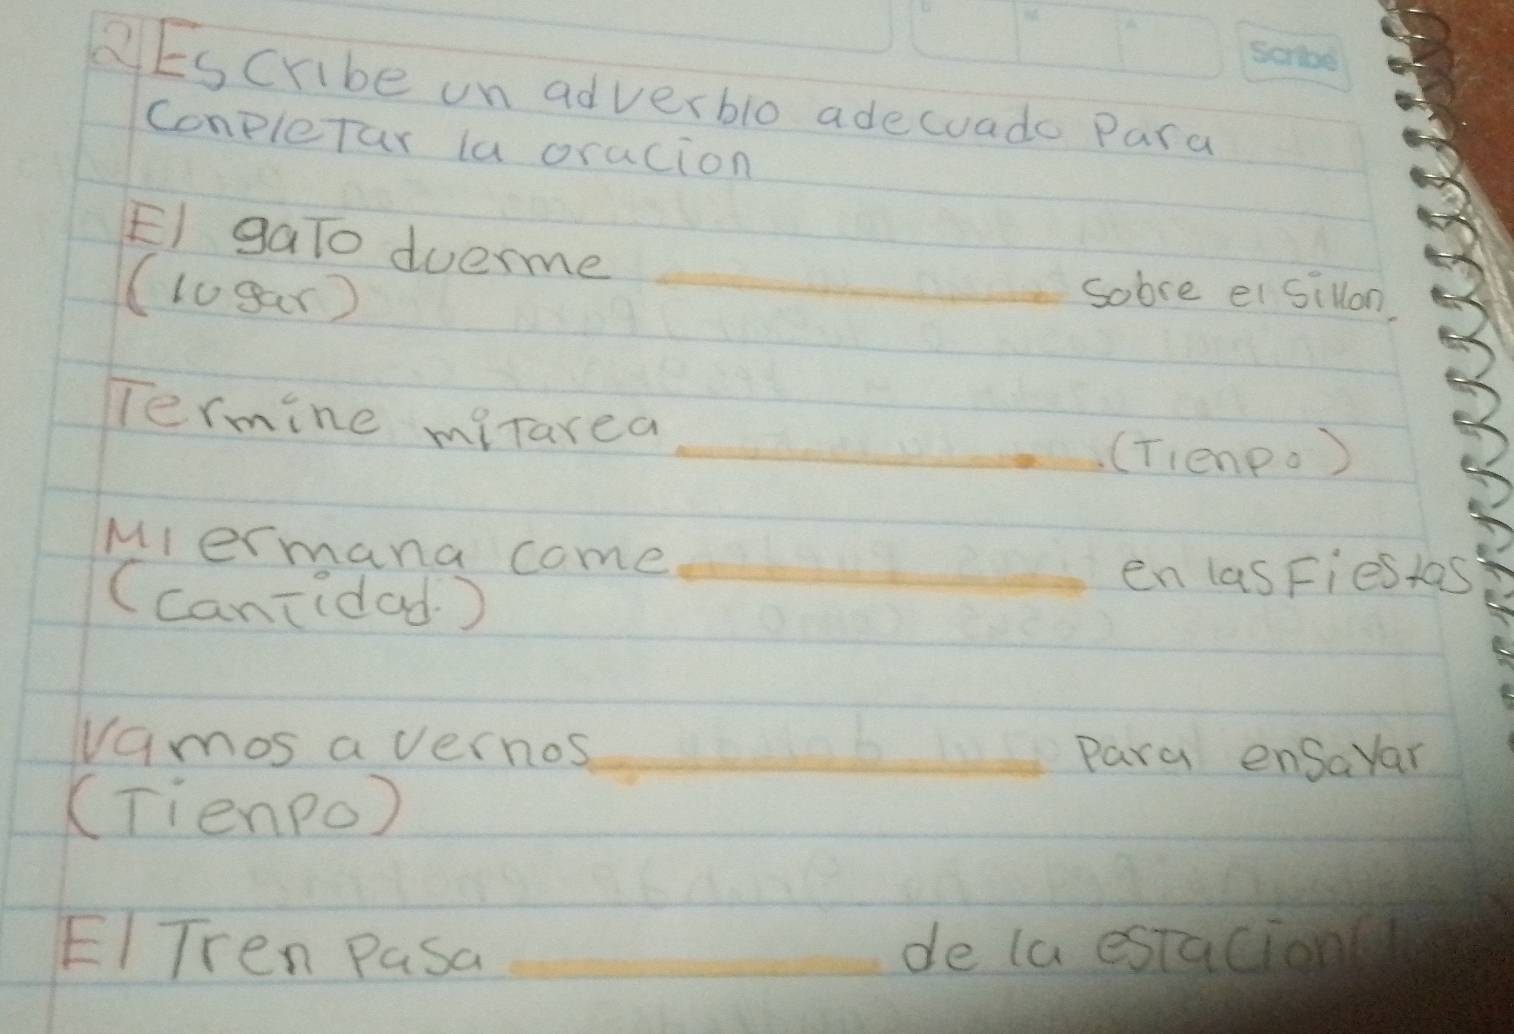 Scribe
2 Escribe un adverbio adecuado Para
conpleTar la oracion
El gaTo duerme ___ sobre el sillon.
(lugar)
Termine miTarea ___. (Tienpo)
Mi ermana come ___ en las Fiestas
(canTidad.)
Vamos a vernos ___ para ensayar
(Tienpo)
El Tren pasa ___ de la esTacion